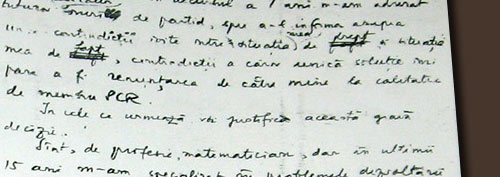 decursul a 7 ani m-am adresat
tuturor de partid, spre a-i informa asupra
contradicții ivite între situația mea de drept și situația
mea de fapt, contradicții a căror unică soluție mi
pare a fi renunțarea de către mine la calitatea
de membru PCR.
În cele ce urmează voi justifica această gravă
decizie.
Sînt, de profesie, matematician, dar în ultimii
15 ani m-am specializat în problemele dezvoltării